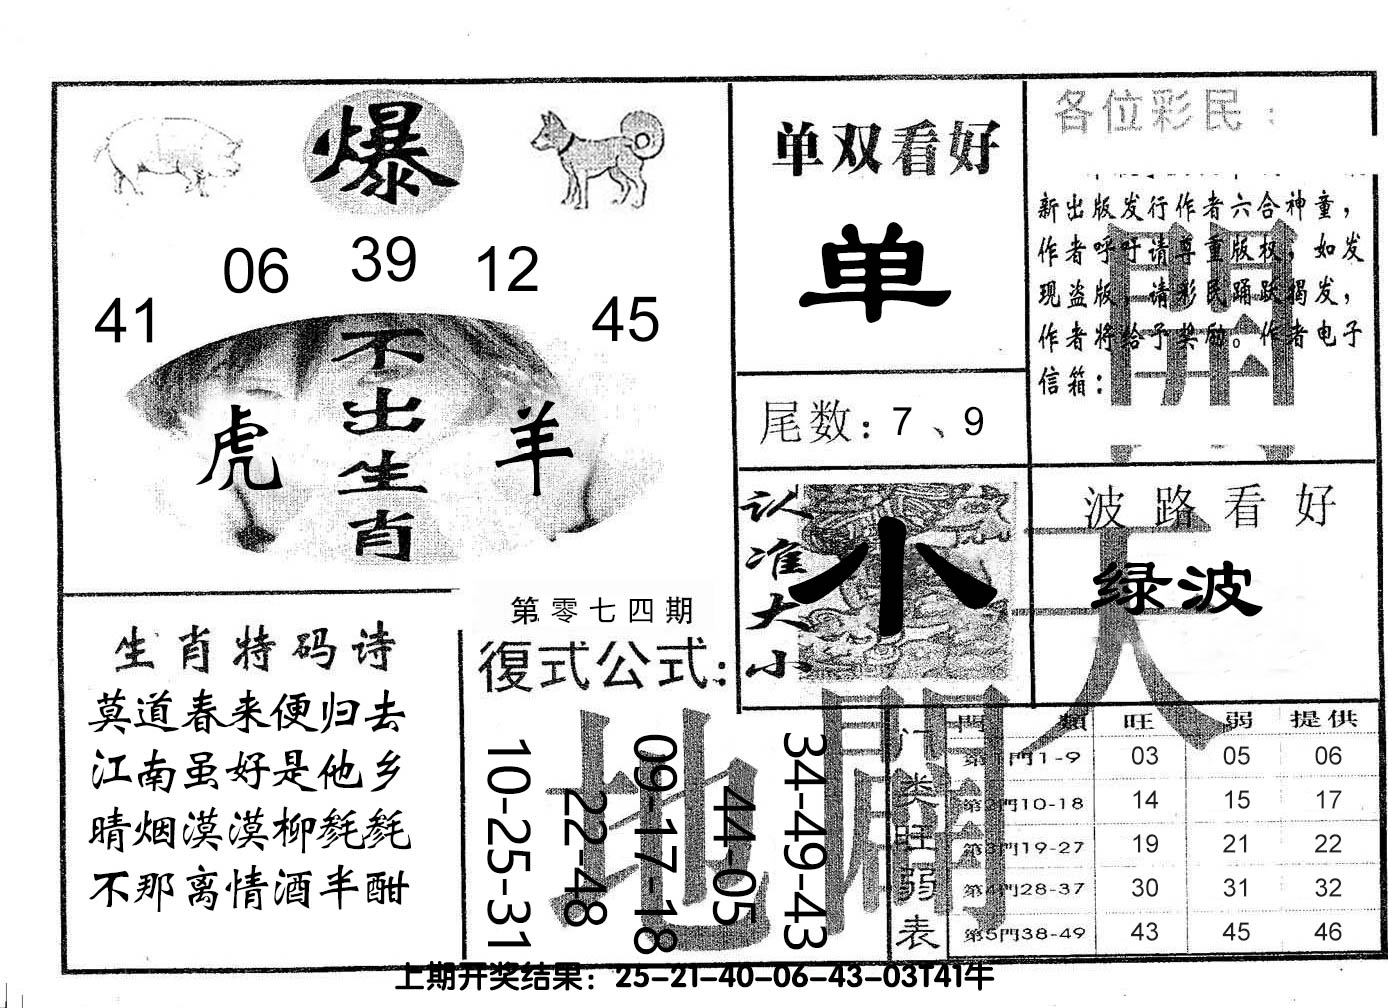 爆
06 39 12
41 45
不出生肖
虎 羊
单双看好
单
尾数：7、9
各位彩民：
新出版发行作者六合神童，
作者呼吁请尊重版权，如发
现盗版，请彩民踊跃揭发，
作者将给予奖励。作者电子
信箱：
開
认准大小
小
波路看好
绿波
天
生肖特码诗
莫道春来便归去
江南虽好是他乡
晴烟漠漠柳毵毵
不那离情酒半酣
第零七四期
復式公式：
10-25-31
22-48
09-17-18
44-05
34-49-43
地
闢
门类旺弱表
門類 旺 弱 提供
第1門1-9 03 05 06
第2門10-18 14 15 17
第3門19-27 19 21 22
第4門28-37 30 31 32
第5門38-49 43 45 46
上期开奖结果：25-21-40-06-43-03T41牛